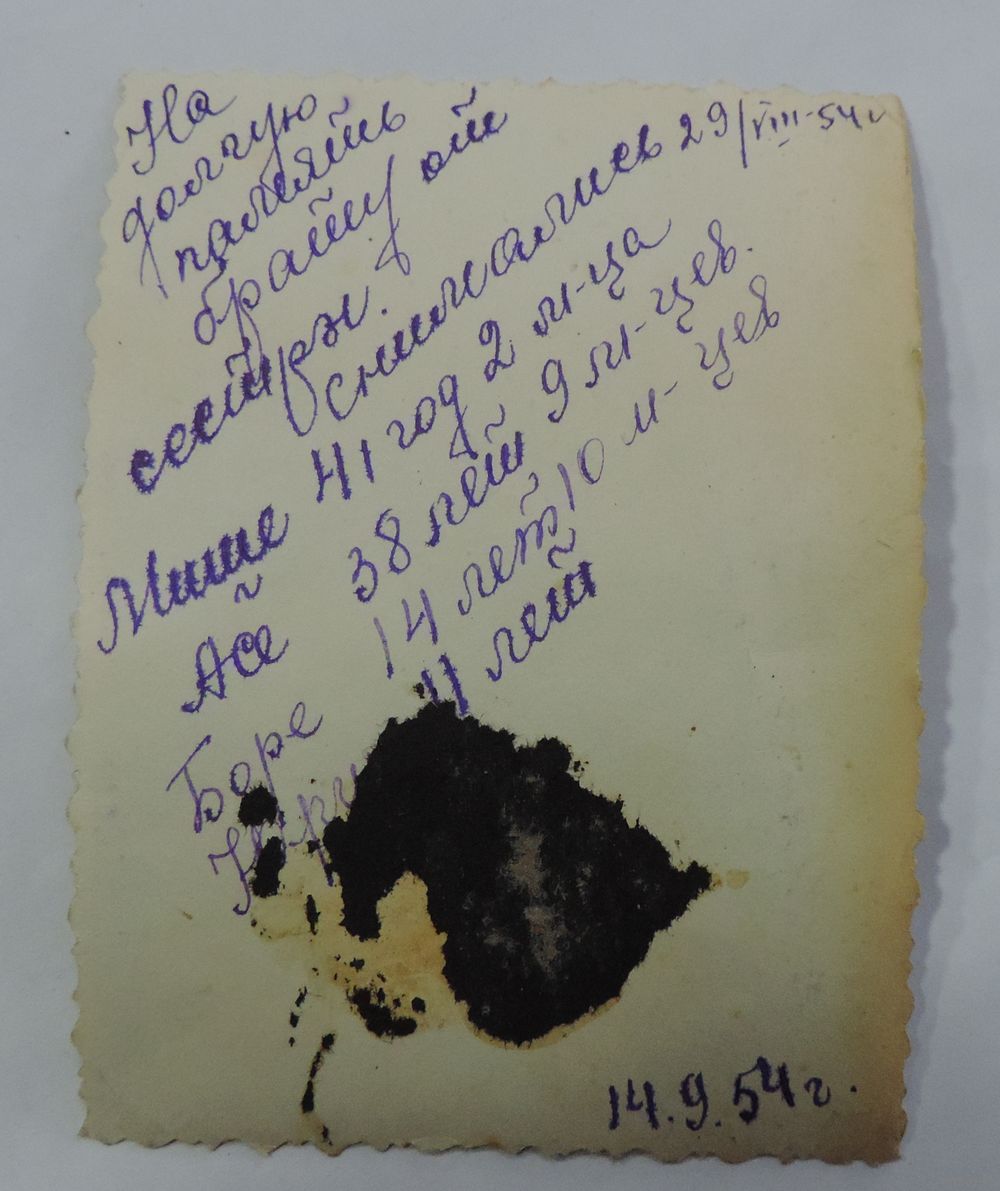 На
долгую
память
брату от
сестры.
снимались 29/VIII-54 г
Мише 41 год 2 м-ца
Асе 38 лет 9 м-цев.
Боре 14 лет 10 м-цев
4 лет
14.9.54 г.